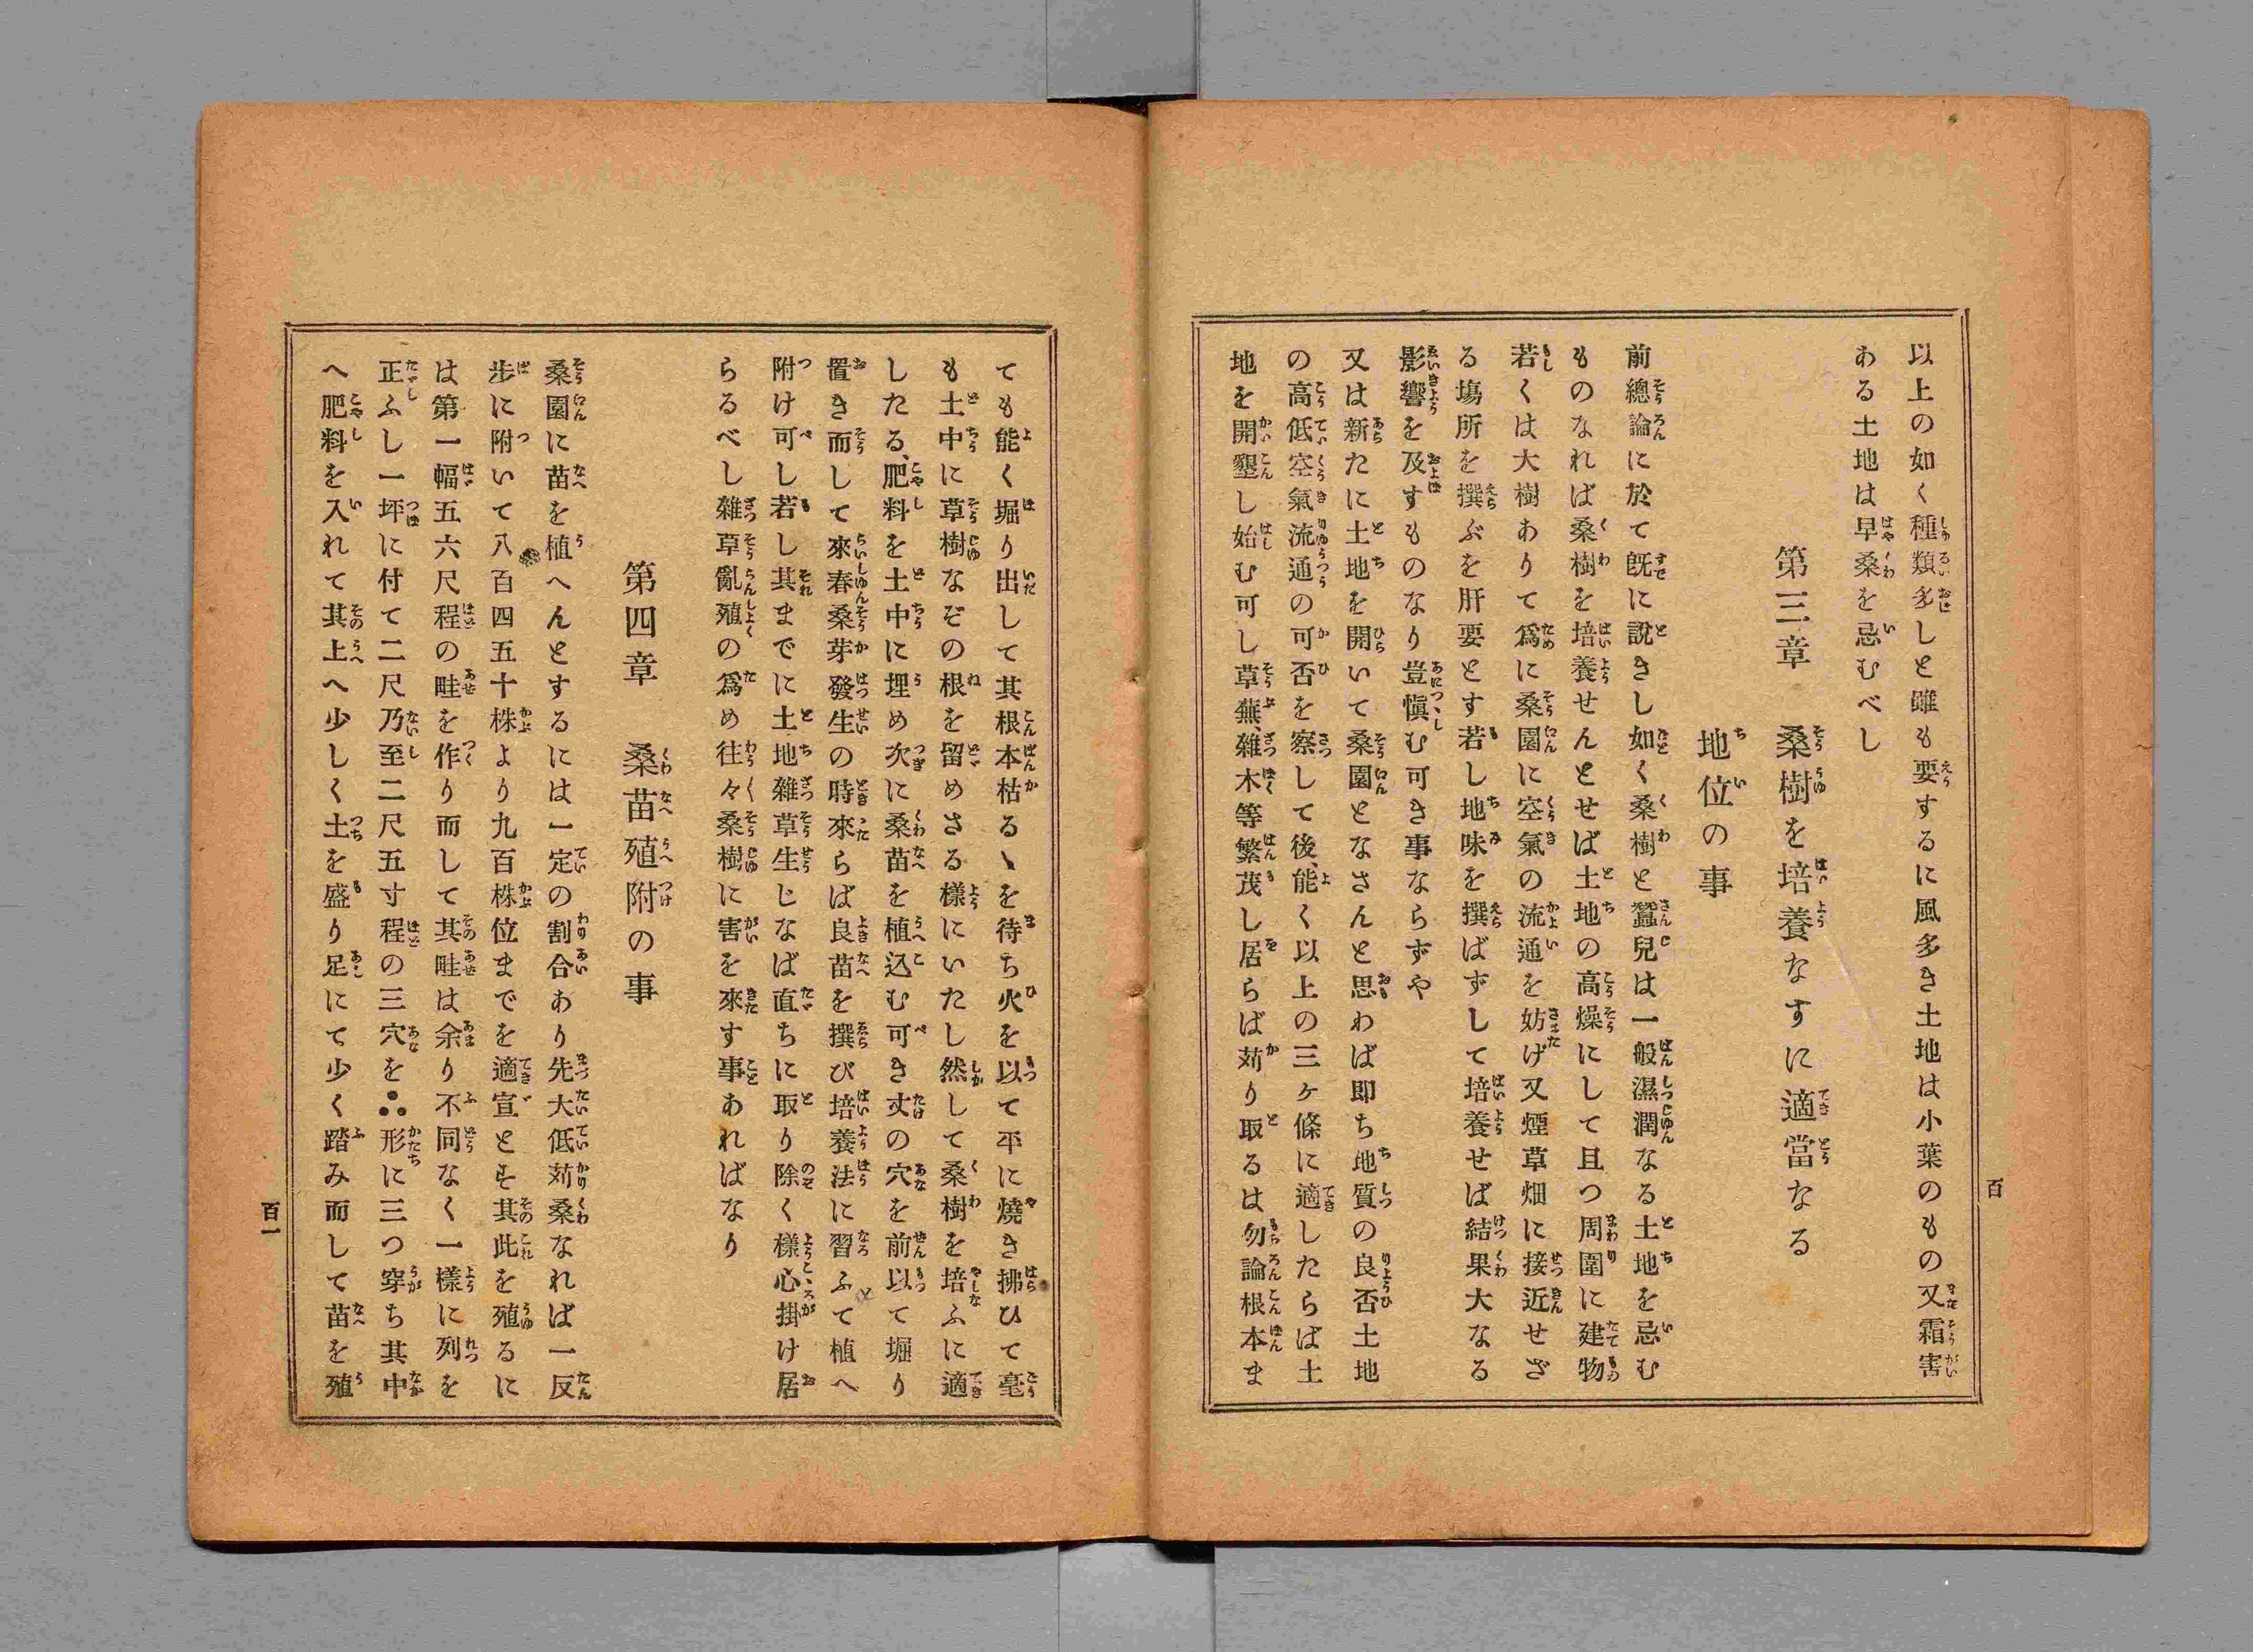 以上の如く種類多しと雖も要するに風多き土地は小葉のもの又霜害
ある土地は早桑を忌むべし
第三章　桑樹を培養なすに適當なる
地位の事
前總論に於て既に說きし如く桑樹と蠶兒は一般濕潤なる土地を忌む
ものなれば桑樹を培養せんとせば土地の高燥にして且つ周圍に建物
若くは大樹ありて爲に桑園に空氣の流通を妨げ又煙草畑に接近せざ
る塲所を撰ぶを肝要とす若し地味を撰ばずして培養せば結果大なる
影響を及すものなり豈愼む可き事ならずや
又は新たに土地を開いて桑園となさんと思わば即ち地質の良否土地
の高低空氣流通の可否を察して後、能く以上の三ヶ條に適したらば土
地を開墾し始む可し草蕪、雜木等繁茂し居らば苅り取るは勿論根本ま
百
ても能く堀り出して其根本枯るヽを待ち火を以て平に燒き拂ひて毫
も土中に草樹なぞの根を留めさる樣にいたし然して桑樹を培ふに適
したる、肥料を土中に埋め次に桑苗を植込む可き丈の穴を前以て堀り
置き而して來春桑芽發生の時來らば良苗を撰び培養法に習ふて植へ
附け可し若し其までに土地雜草生じなば直ちに取り除く樣心掛け居
らるべし雜草亂殖の爲め往々桑樹に害を來す事あればなり
第四章　桑苗殖附の事
桑園に苗を植へんとするには一定の割合あり先大低苅桑なれば一反
步に附いて八百四五十株より九百株位までを適宣とす其此を殖るに
は第一幅五六尺程の畦を作り而して其畦は余り不同なく一樣に列を
正ふし一坪に付て二尺乃至二尺五寸程の三穴を∴形に三つ穿ち其中
へ肥料を入れて其上へ少しく土を盛り足にて少く踏み而して苗を殖
百一